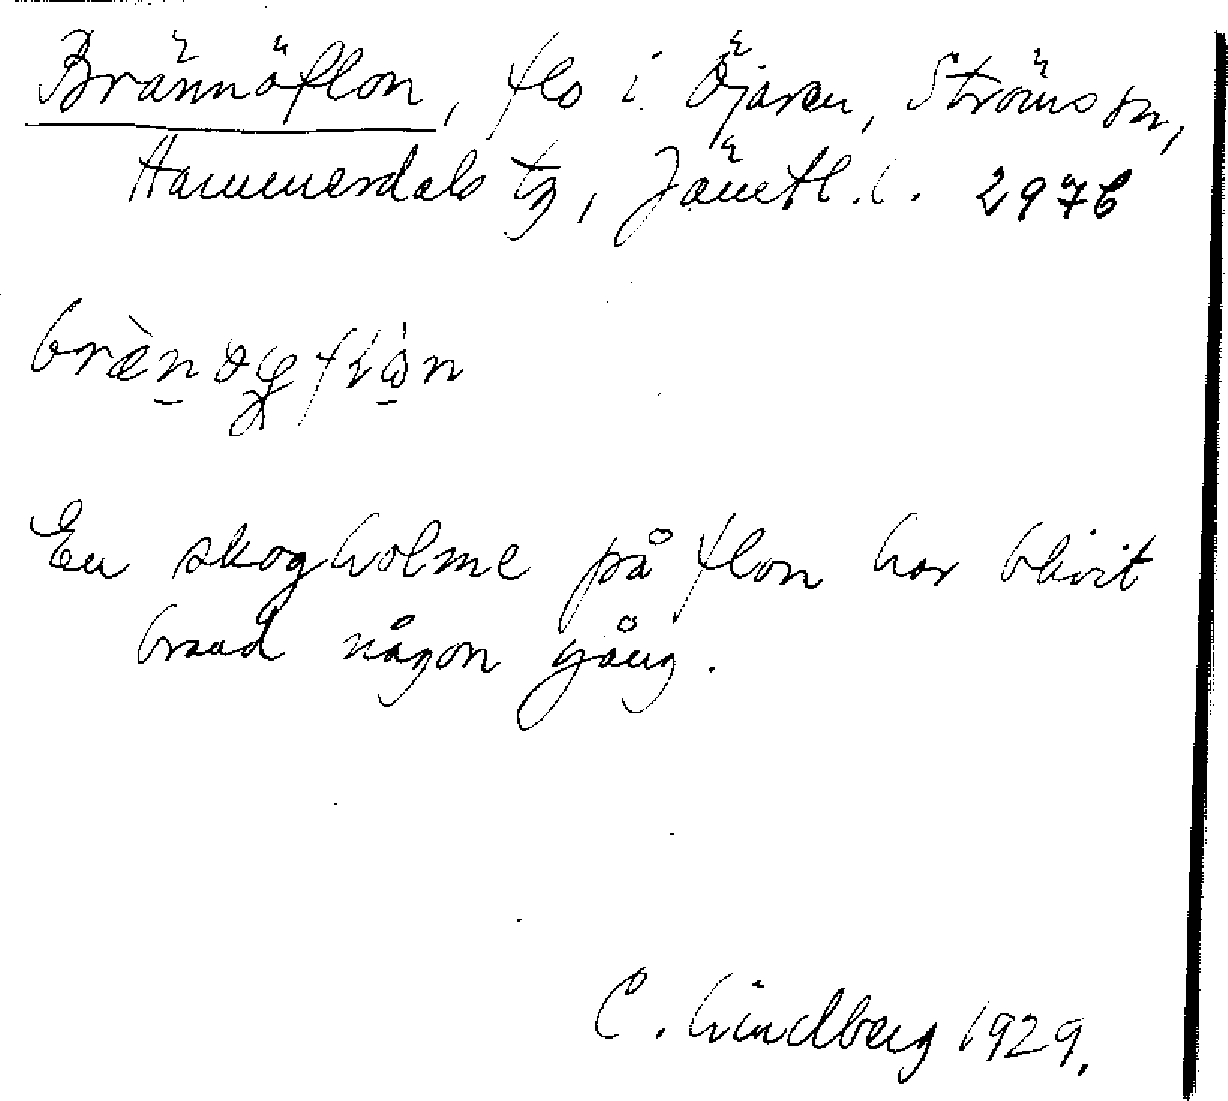 Brännöflon, flo i Öjaren, Ströms sn,
Hammerdals tg, Jämtl. l. 2976
En skogholme på flon har blivit
bränd någon gång.
C. Lindberg 1929.